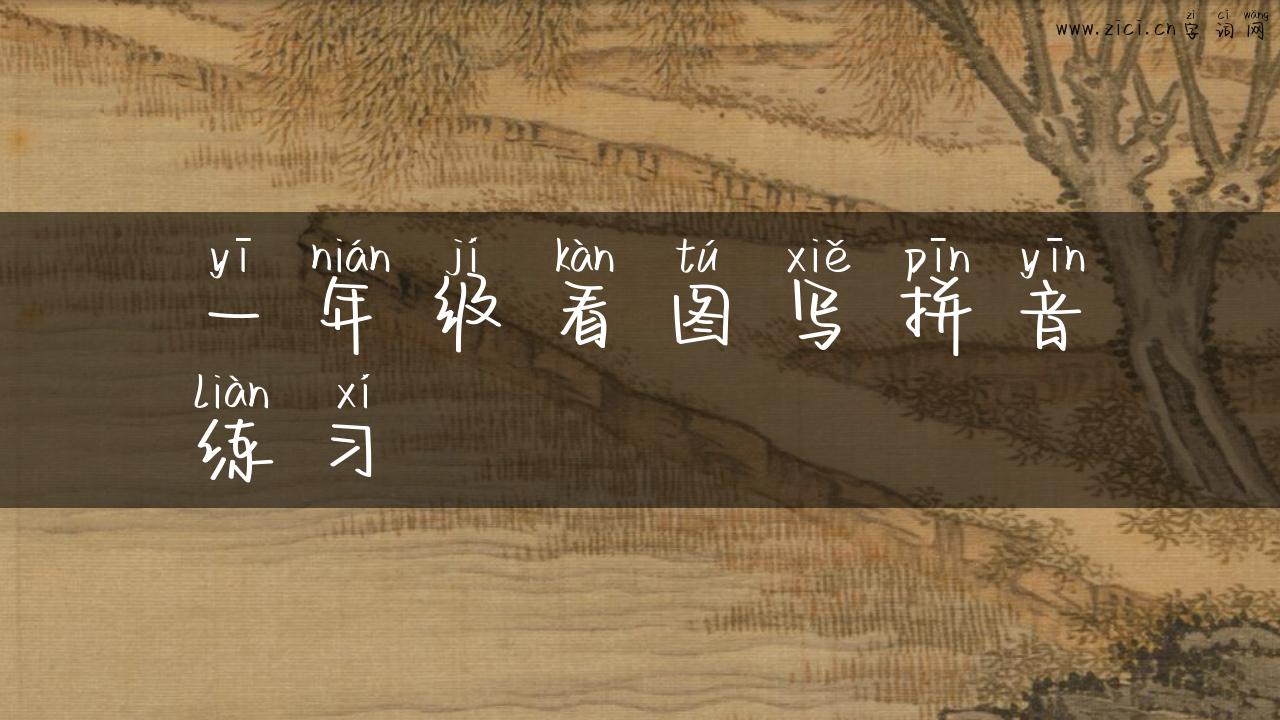 zì cí wǎng
www.zici.cn字词网
yī nián jí kàn tú xiě pīn yīn
一年级看图写拼音
liàn xí
练习